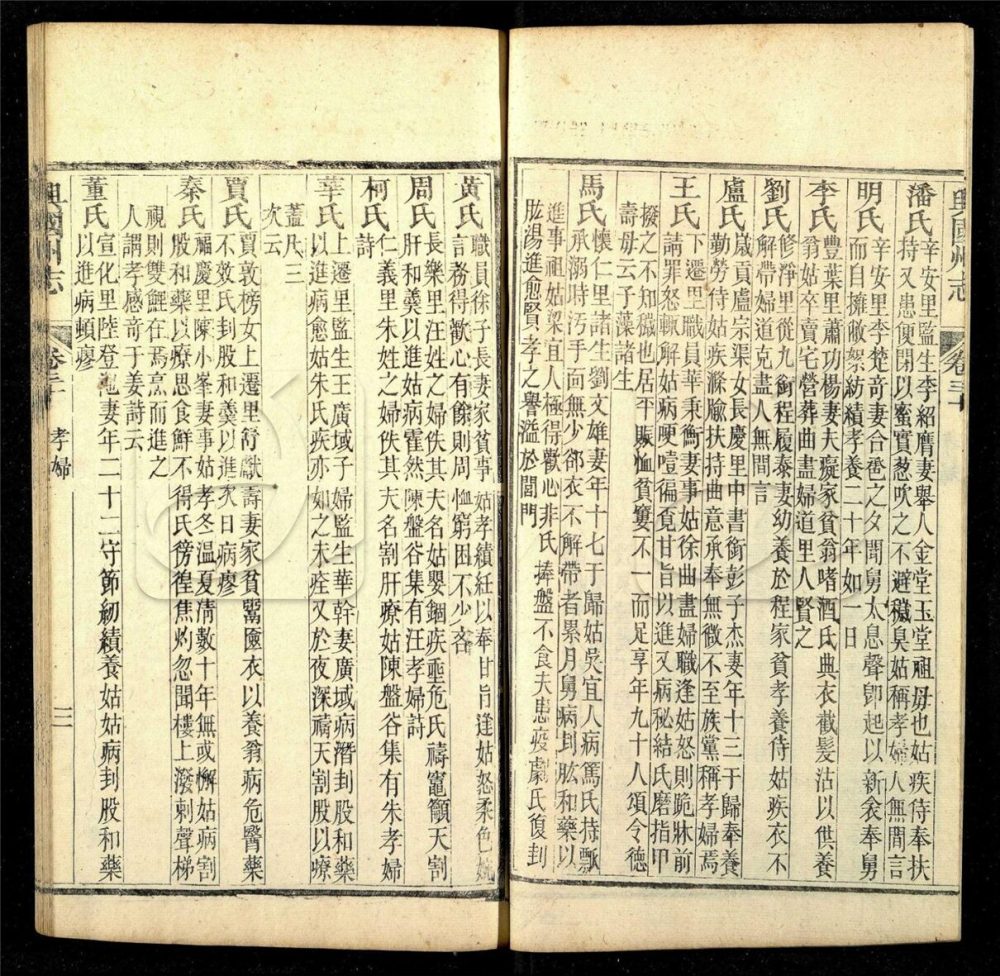 興國州志 卷二十
潘氏 辛安里監生李紹膺妻舉人金堂玉堂祖母也姑疾侍奉扶
持又患便閉以蜜實葱吹之不避穢臭姑稱孝婦人無間言
明氏 辛安里李楚奇妻合卺之夕聞舅太息聲卽起以新衾奉舅
而自擁敝絮紡績孝養二十年如一日
李氏 豐葉里蕭功楊妻夫癡家貧翁嗜酒氏典衣截髮沽以供養
翁姑卒賣宅營葬曲盡婦道里人賢之
劉氏 修淨里從九銜程履泰妻幼養於程家貧孝養侍姑疾衣不
解帶婦道克盡人無間言
盧氏 歲貢盧宗渠女長慶里中書銜彭子杰妻年十三于歸奉養
勤勞侍姑疾滌腧扶持曲意承奉無微不至族黨稱孝婦焉
王氏 下遷里職員華秉衡妻事姑徐曲盡婦職逢姑怒則跪牀前
請罪怒輒解姑病哽噎徧覓甘旨以進又病秘結氏磨指甲
掇之不知穢也居平賑恤貧窶不一而足享年九十人頌令德
壽母云子藻諸生
馬氏 懷仁里諸生劉文雄妻年十七于歸姑吳宜人病篤氏持瓢
承溺時污手面無少郤衣不解帶者累月舅病刲肱和藥以
進事祖姑梁宜人極得歡心非氏捧盤不食夫患疫劇氏復刲
肱湯進愈賢孝之譽溢於閭門
黃氏 職員徐子長妻家貧事姑孝績紝以奉甘旨逢姑怒柔色婉
言務得歡心有餘則周恤窮困不少吝
周氏 長樂里汪姓之婦佚其夫名姑嬰錮疾垂危氏禱竈籲天割
肝和羹以進姑病霍然陳盤谷集有汪孝婦詩
柯氏 仁義里朱姓之婦佚其夫名割肝療姑陳盤谷集有朱孝婦
詩
華氏 上遷里監生王廣域子婦監生華幹妻廣域病潛刲股和藥
以進病愈姑朱氏疾亦如之未痊又於夜深禱天割股以療
蓋凡三
次云
賈氏 賈敦榜女上遷里舒獻壽妻家貧鬻匳衣以養翁病危醫藥
不效氏刲股和羹以進次日病瘳
秦氏 福慶里陳小峯妻事姑孝冬温夏凊數十年無或懈姑病割
股和藥以療思食鮮不得氏徬徨焦灼忽聞樓上潑剌聲梯
視則雙鯉在焉烹而進之
人謂孝感奇于姜詩云
董氏 宣化里陸登妻年二十二守節紉績養姑姑病刲股和藥
以進病頓瘳
興國州志 卷二十 孝婦 三